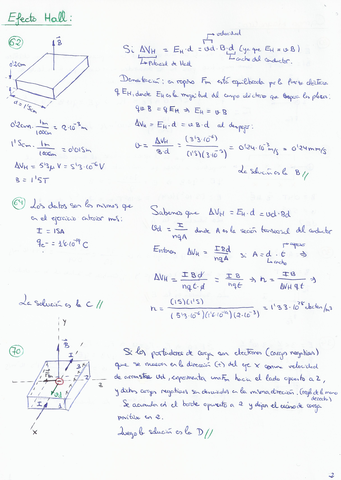 Efecto Hall:
62
B
0'2cm
a = 1'5cm
0'2cm. 1m/100cm = 2·10⁻³m
1'5cm. 1m/100cm = 0'015m
ΔV_H = 5'3 μV = 5'3·10⁻⁶V
B = 1'5T
velocidad
Si ΔV_H = E_H·d = vd·B·d (ya que E_H = vB)
Potencial de Hall
ancho del conductor.
Demostración: en reposo F_m está equilibrada por la fuerza eléctrica
qE_H, donde E_H es la magnitud del campo eléctrico que la placa.
qvB = qE_H ⇒ E_H = vB
ΔV_H = E_H·d = vB·d al despejar:
v = ΔV_H/B·d = = 0'24 mm/s
La solución es la B //
69
Los datos son los mismos que
en el ejercicio anterior más:
I = 15A
q_e- = 1'6·10⁻¹⁹ C
La solución es la C //
Sabemos que ΔV_H = E_H·d = vd·Bd
vd = I/nqA donde A es la sección transversal del conductor
Entonces ΔV_H = IBd/nqA si A = d·t ⇒
ΔV_H = IBd/nqt·d = IB/nqt ⇒ n = IB/ΔV_H qt ⇒
n = (15)(1'5)/(5'3·10⁻⁶)(1'6·10⁻¹⁹)(2·10⁻³) = 1'33·10²⁸
70
Y
B
I
1
2
3
z
x
Si los portadores de carga son electrones (cargas negativas)
que se mueven en la dirección (+) del eje x como velocidad
de arrastre vd, experimenta una hacia el lado opuesto a 2,
y dichas cargas negativas son desviadas en la misma dirección.
Se acumula en el borde opuesto a 2 y dejan el exceso de carga
positiva en 2.
Luego la solución es la D //